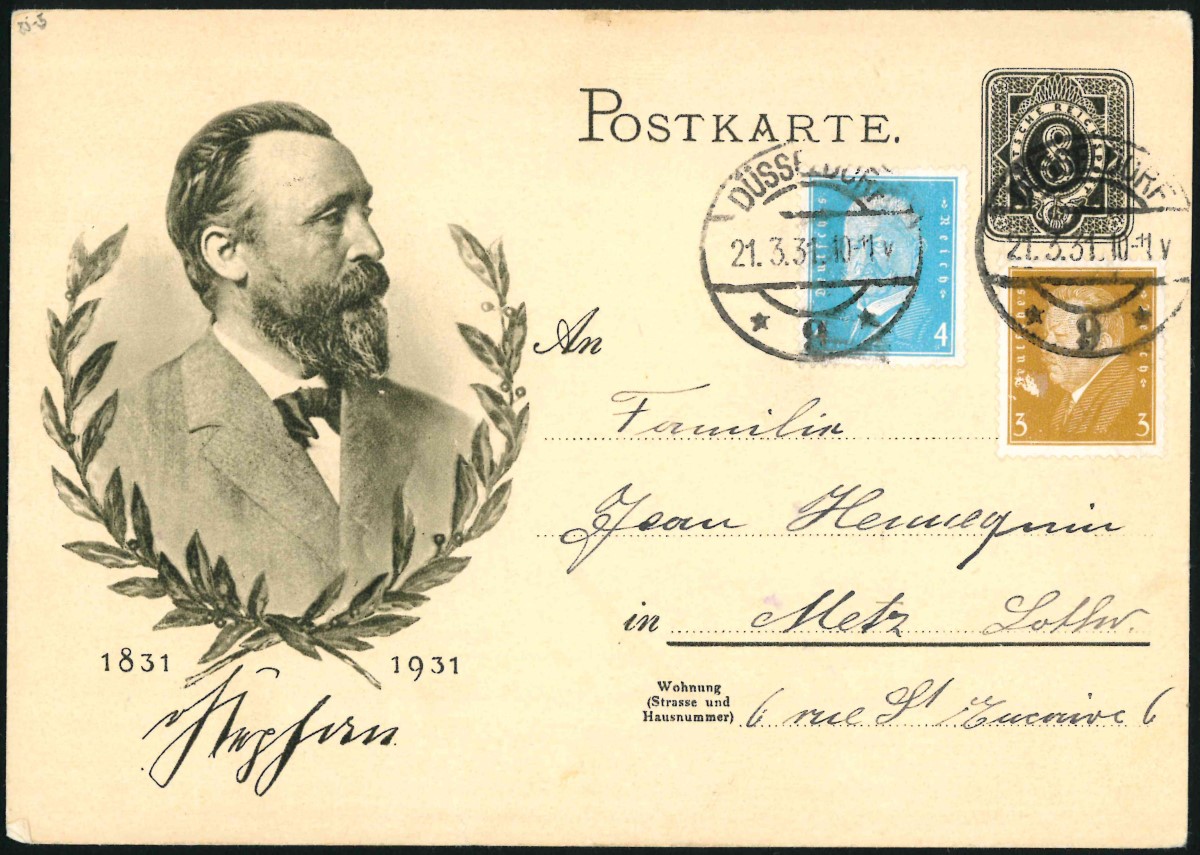 POSTKARTE.
DEUTSCHE REICHSPOST
8
DÜSSELDORF
21.3.31.10-11V
* 9 *
Deutsches Reich
4
DÜSSELDORF
21.3.31.10-11V
* 9 *
Deutsches Reich
3 3
An
Familie
Jean Hennequin
in Metz Lothr.
Wohnung
(Strasse und
Hausnummer)
6 rue St Eucaire 6
1831 1931
Stephan